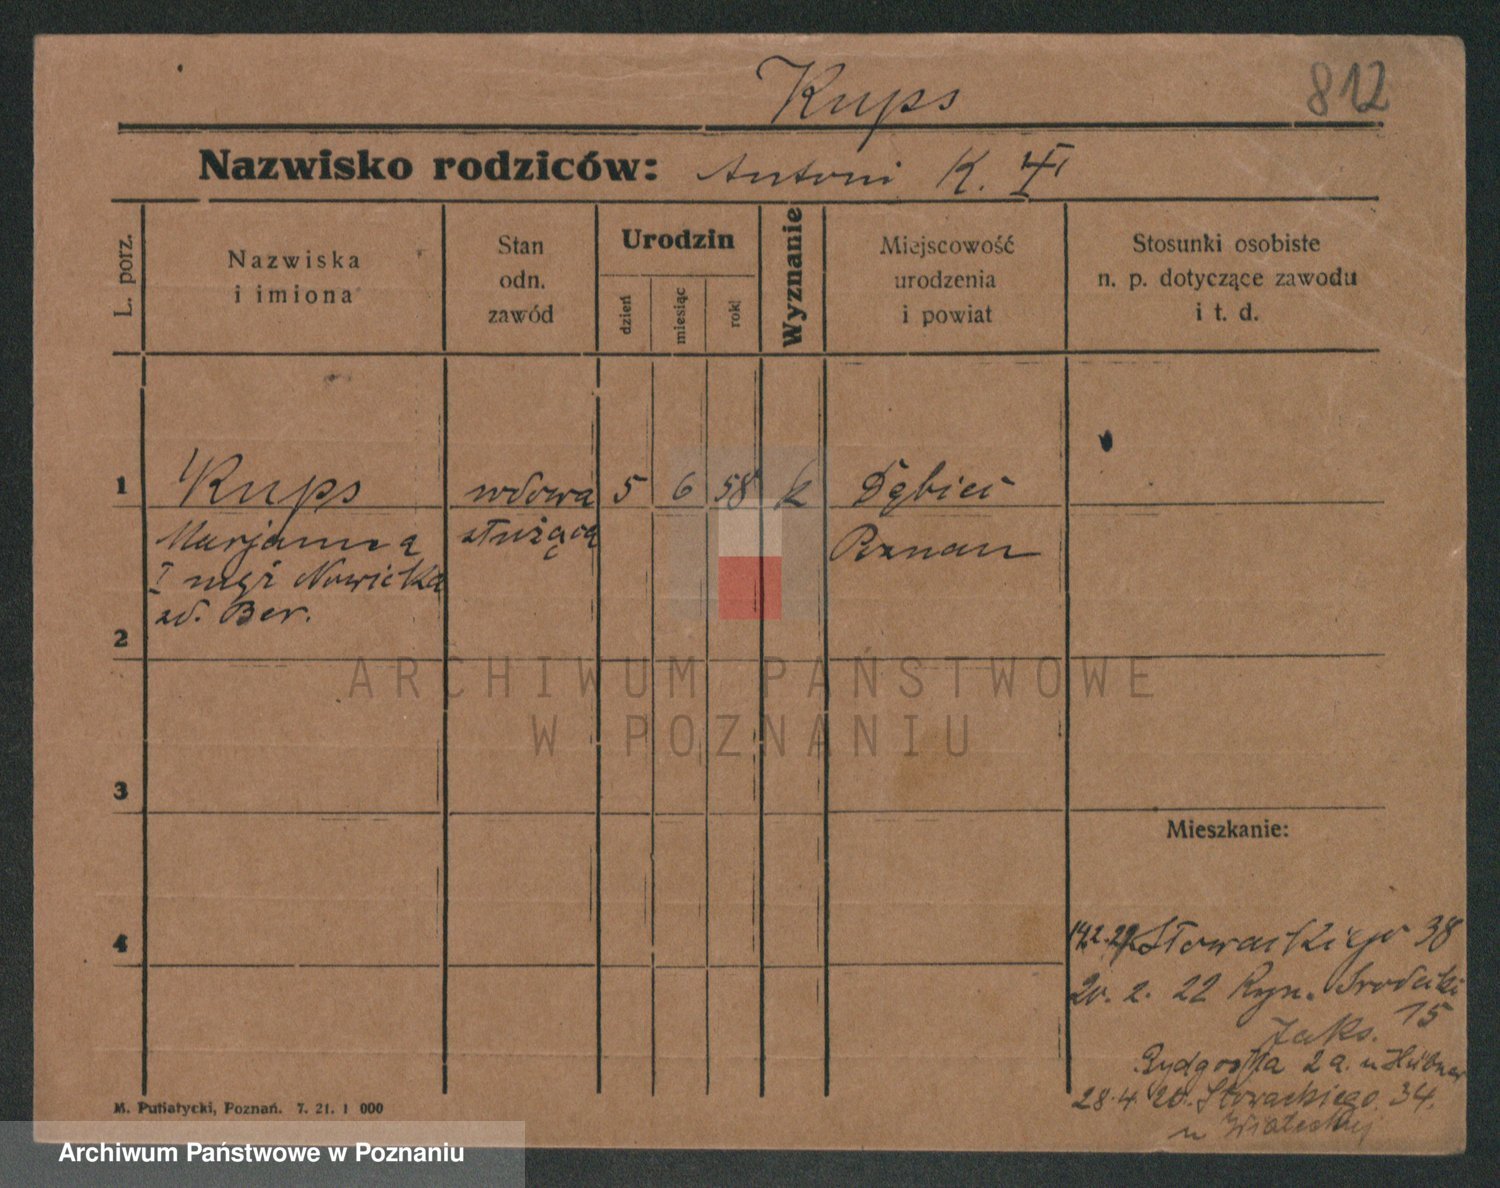 Kups
812
Nazwisko rodziców: Antoni K. II
L. porz.
Nazwiska
i imiona
Stan
odn.
zawód
Urodzin
dzień
miesiąc
rok
Wyznanie
Miejscowość
urodzenia
i powiat
Stosunki osobiste
n. p. dotyczące zawodu
i t. d.
1 Kups wdowa 5 6 58 k Dębiec
Marjanna służąca Poznan
I męż Nowicka
zd. Ber.
2
ARCHIWUM PAŃSTWOWE
W POZNANIU
3
Mieszkanie:
4
Słowackiego 38
20. 2. 22 Ryn. Srodecki
15
Jaks.
Bydgoska 2a. u
28.4. Słowackiego 34.
u
M. Putiatycki, Poznań. 7. 21. 1 000
Archiwum Państwowe w Poznaniu